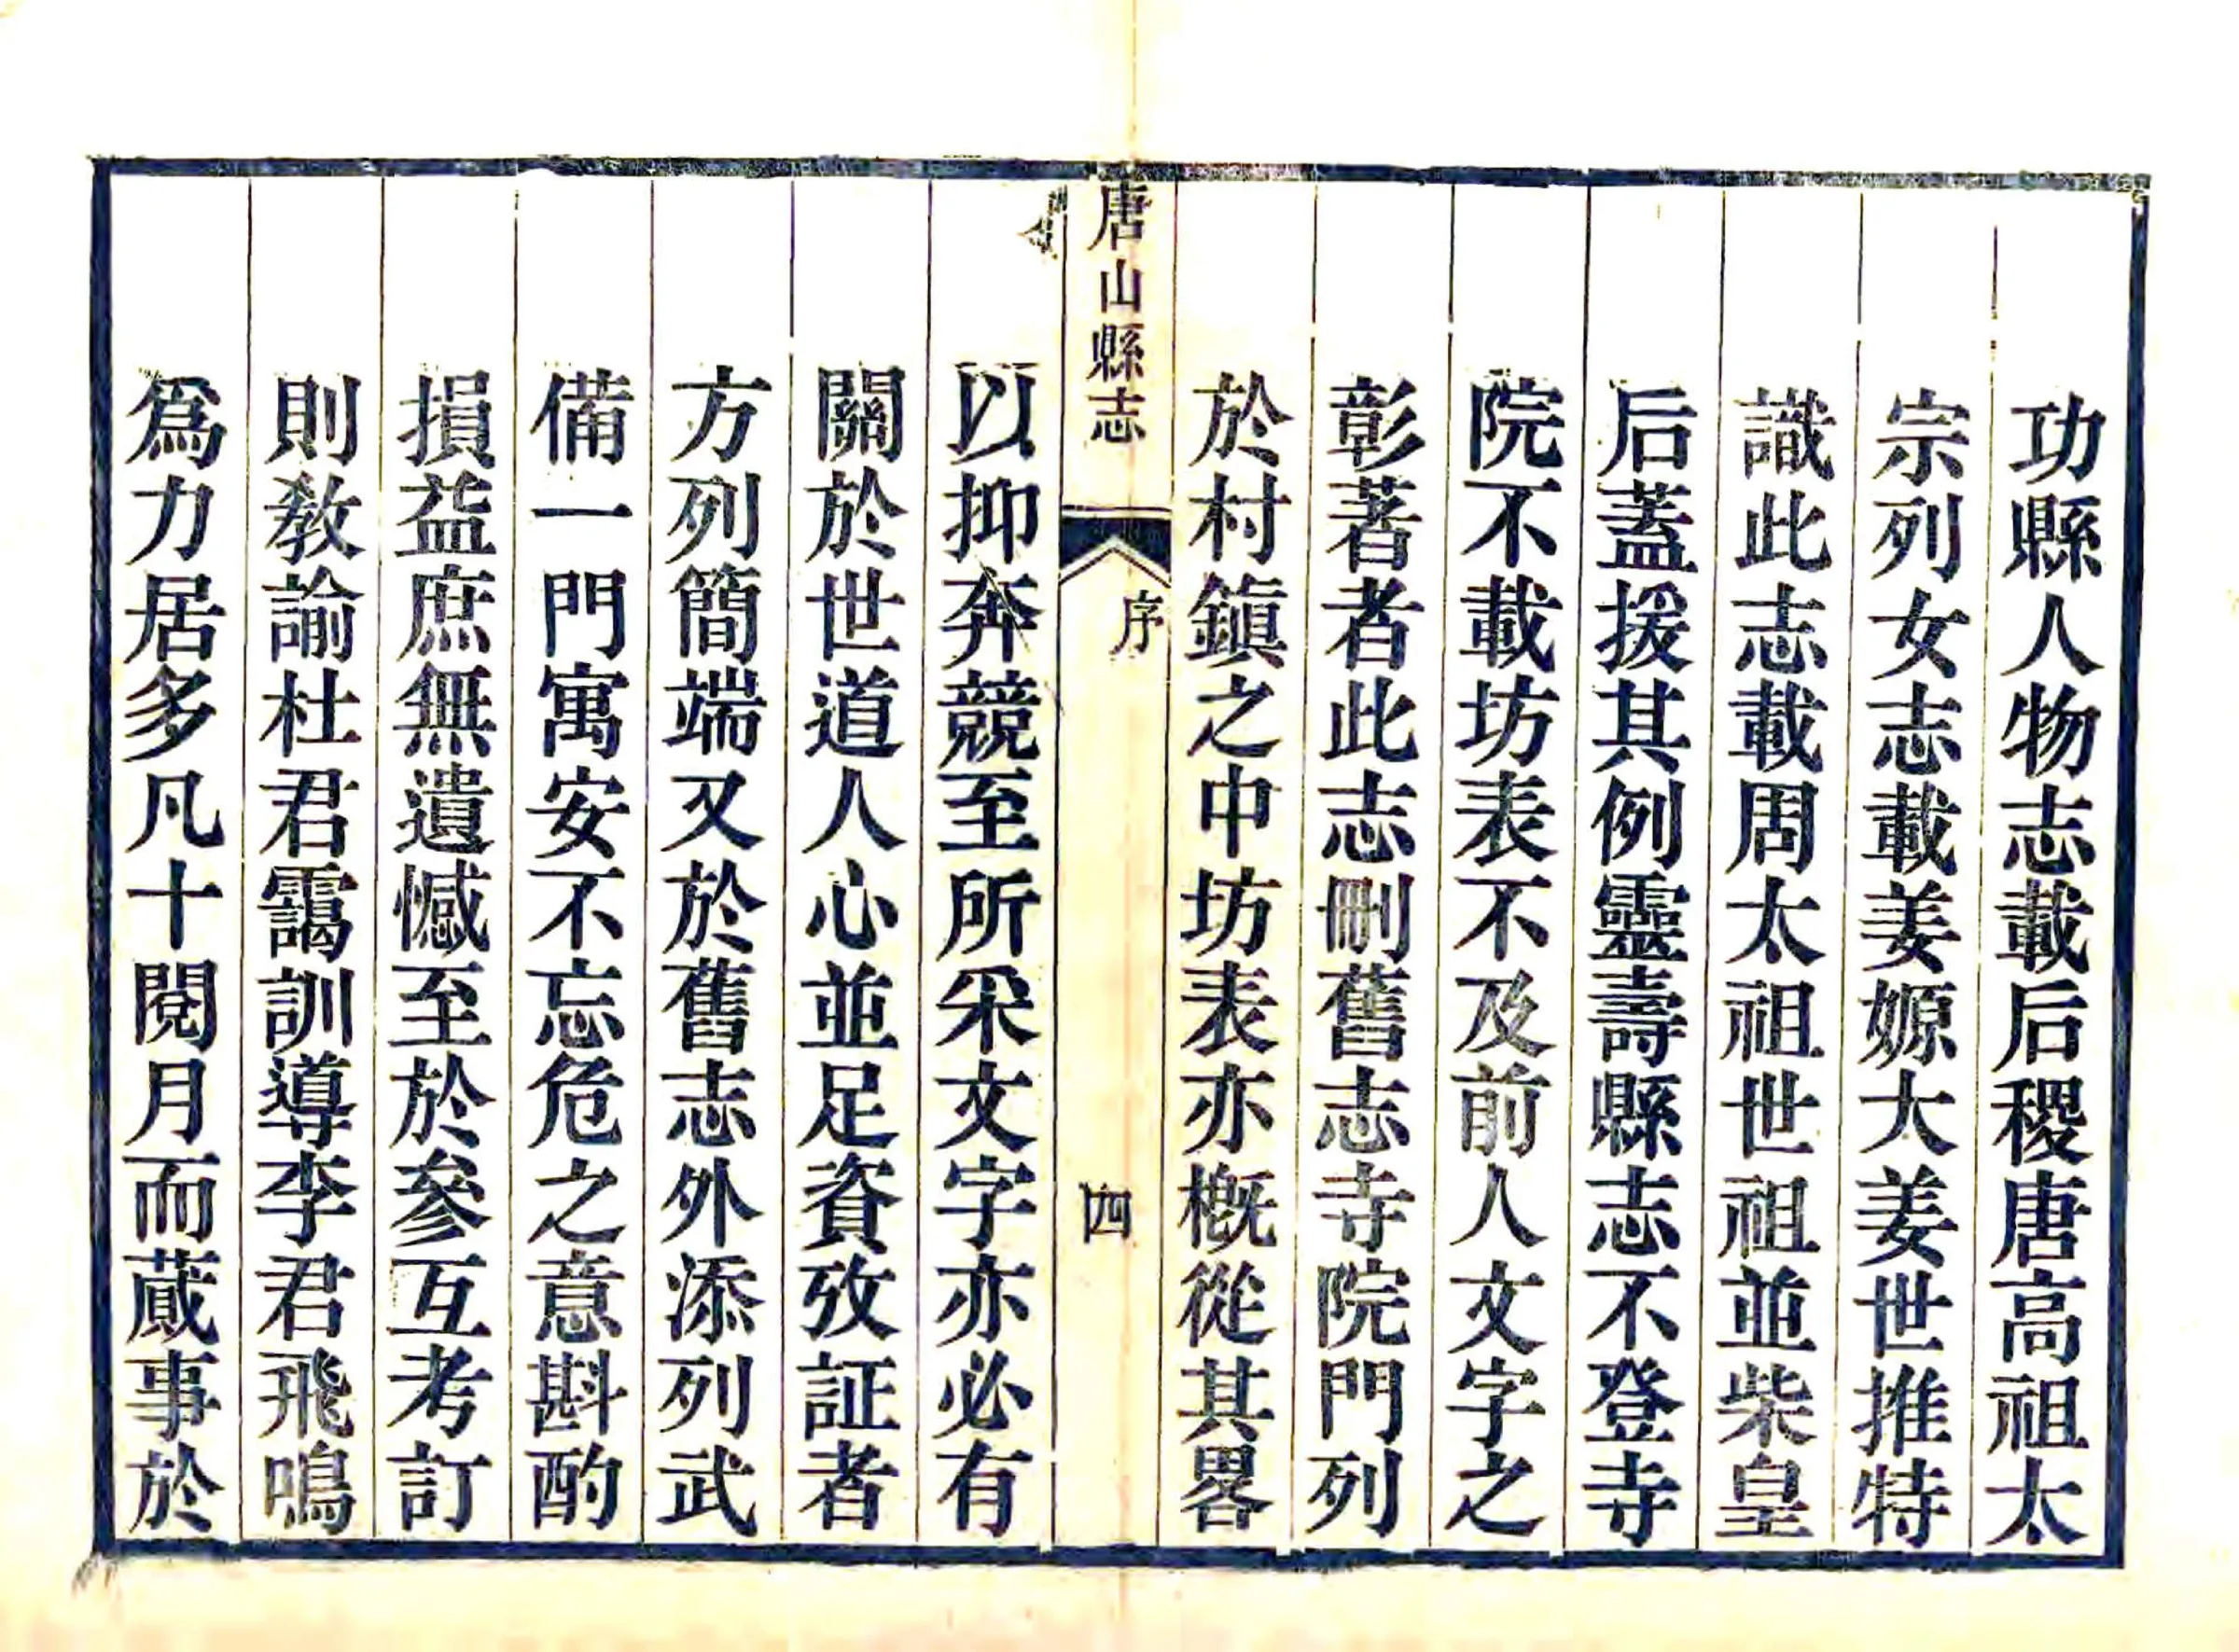 功縣人物志載后稷唐高祖太
宗列女志載姜嫄大姜世推特
識此志載周太祖世祖並柴皇
后蓋援其例靈壽縣志不登寺
院不載坊表不及前人文字之
彰著者此志刪舊志寺院門列
於村鎭之中坊表亦槪從其畧
唐山縣志
序
四
以抑奔競至所采文字亦必有
關於世道人心並足資攷証者
方列簡端又於舊志外添列武
備一門寓安不忘危之意斟酌
損益庶無遺憾至於參互考訂
則敎諭杜君靄訓導李君飛鳴
爲力居多凡十閱月而蕆事於